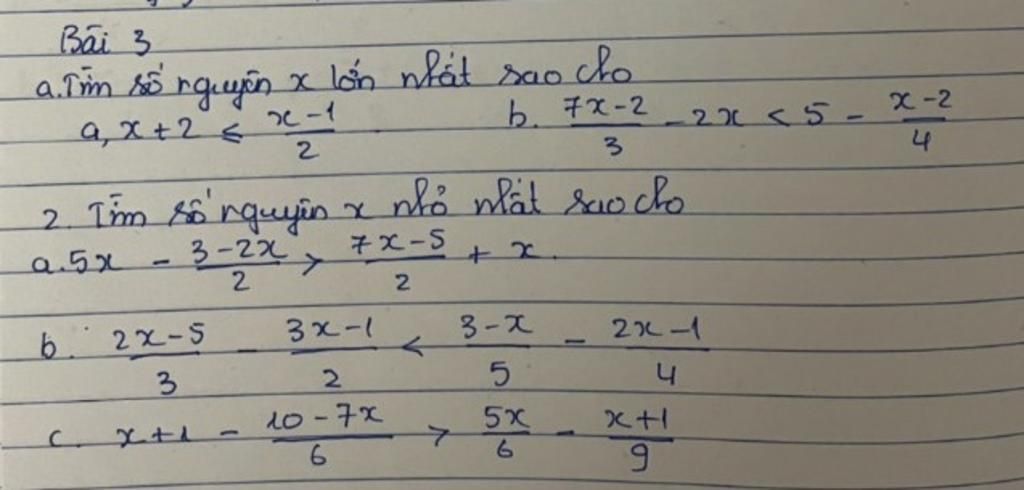 Bài 3
a. Tìm số nguyên x lớn nhất sao cho
a, x + 2 ≤ (x - 1)/2   b. (7x - 2)/3 - 2x < 5 - (x - 2)/4
2. Tìm số nguyên x nhỏ nhất sao cho
a. 5x - (3 - 2x)/2 > (7x - 5)/2 + x.
b. (2x - 5)/3 - (3x - 1)/2 < (3 - x)/5 - (2x - 1)/4
c. x + 1 - (10 - 7x)/6 > 5x/6 - (x + 1)/9